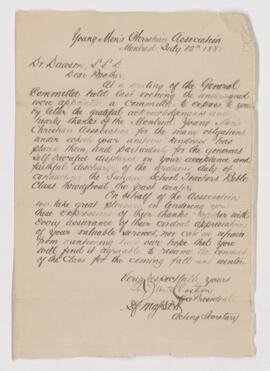 Young Men's Christian Association
Montreal July 12th 188
Dr Dawson, LLD
Dear Brother,
At a meeting of the General
Committee held this evening the undersigned
were appointed a Committee to express to you
by letter the grateful acknowledgement and
hearty thanks of the Montreal Young Men's
Christian Association for the many obligations
under which your uniform kindness has
placed them, and particularly for the generous
self sacrifice displayed in your acceptance and
faithful discharge of the arduous duties of
conducting the Sabbath School Teachers Bible
Class throughout the past winter.
On behalf of the Association
we take great pleasure in tendering you
these expressions of their thanks together with
every assurance of their cordial appreciation
of your valuable services, nor can we refrain
from mentioning our hope that you
will find it agreeable to resume the conduct
of the Class for the coming fall and winter.
Very respectfully yours
President
Acting Secretary